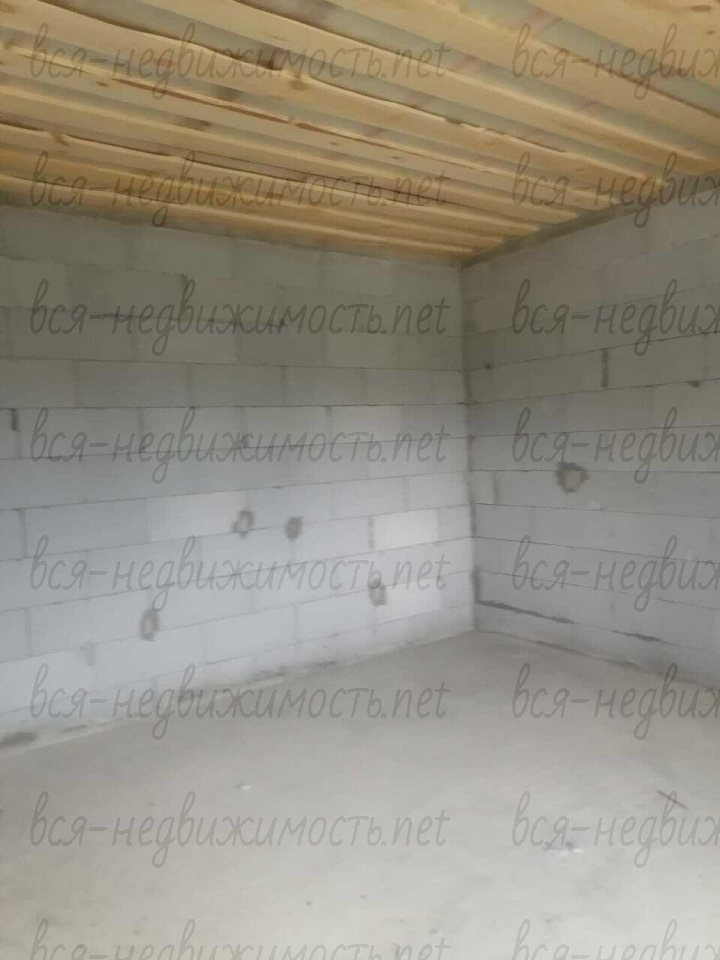 вся-недвижимость.net вся-недвиж
вся-недвижимость.net вся-недвиж
вся-недвижимость.net вся-недвиж
вся-недвижимость.net вся-недвиж
вся-недвижимость.net вся-недвиж
вся-недвижимость.net вся-недвиж
вся-недвижимость.net вся-недвиж
вся-недвижимость.net вся-недвиж